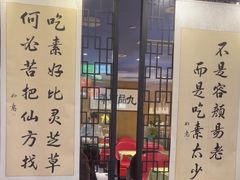 不是容颜易老
而是吃素太少
吃素好比灵芝草
何必苦把仙方找
九品